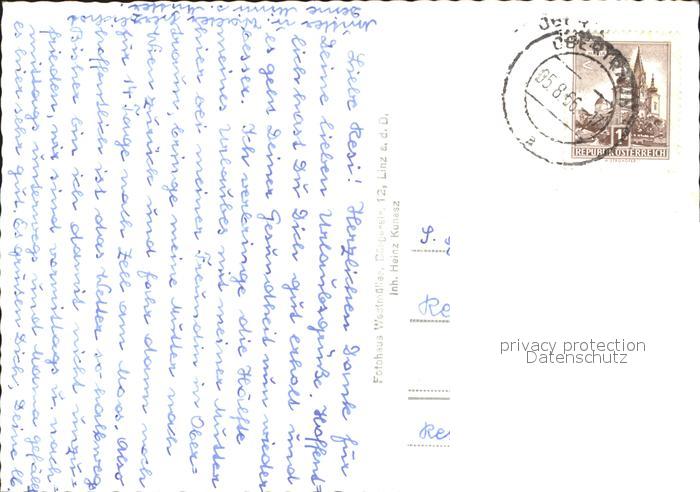 Liebe Resi! Herzlichen Dank für
Deine lieben Urlaubsgrüße. Hoffent=
lich hast Du Dich gut erholt und
es geht Deiner Gesundheit nun wieder
besser. Ich verbringe die Hälfte
meines Urlaubes mit meiner Mutter
hier bei meiner Freundin in Ober=
traun, bringe meine Mutter nach
Wien zurück und fahr dann noch
für 14 Tage nach Zell am Moos. Also
hoffentlich ist das Wetter so halbwegs
Bisher bin ich damit nicht unzu=
frieden, wir sind vormittags u. nach=
mittags unterwegs und Mama gefällt
es hier sehr gut. Es grüßen Dich, Deine lb.
Fotohaus Westmüller, 12, Linz a. d. D.
Inh. Heinz Kunasz
OBERTRAUN
05.8.66
a
1S
REPUBLIK ÖSTERREICH
privacy protection
Datenschutz